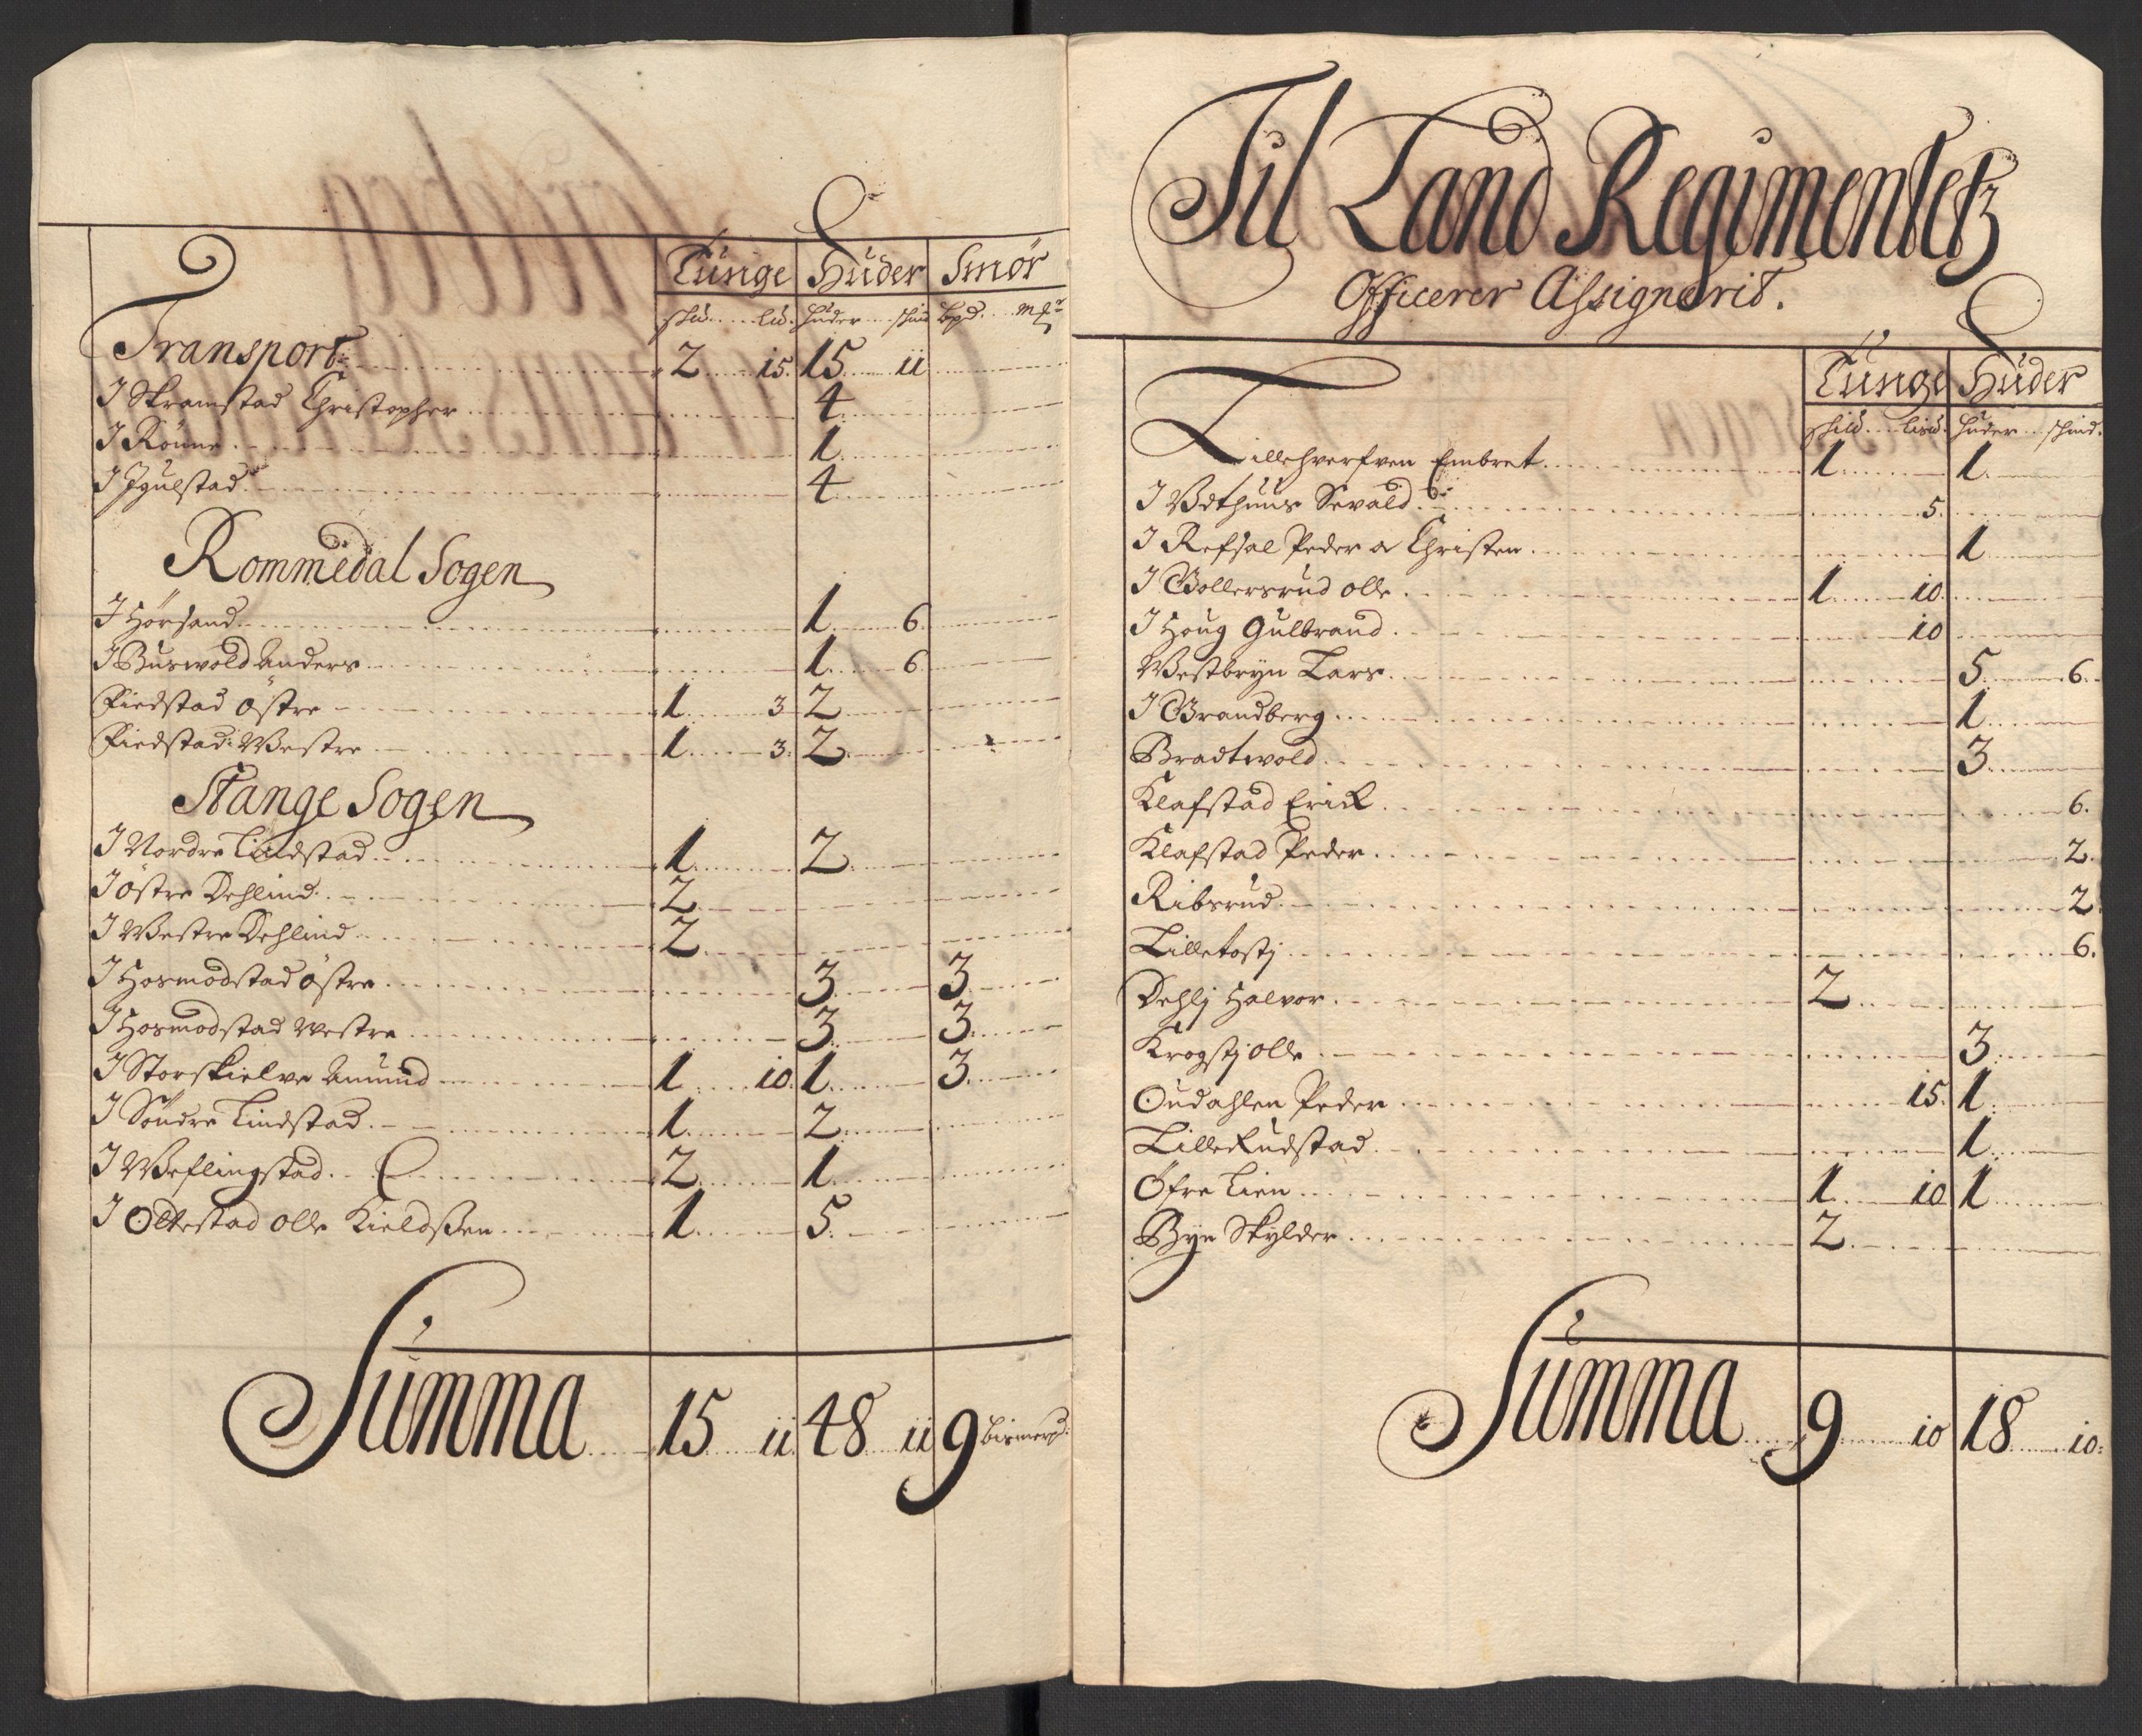 Tunge Huder Smør
shu. lu. huder shind bpd. mk
Transport 2 15 15 11
J Skramstad Christopher 4
J Rönne 1
J Jgulstad 4
Rommedal Sogen
J Hörsand 1 6
J Buswold Anders 1 6
Fiedstad östre 1 3 2
Fiedstad Westre 1 3 2
Stange Sogen
J Nordre Lindstad 1 2
J östre Dehlind 2
J Westre Dehlind 2
J Hosmodstad östre 3 3
J Hosmodstad westre 3 3
J Storskielve Amund 1 10 1 3
J Söndre Lindstad 1 2
J Weflingstad 2 1
J Ottestad Olle Kieldsßen 1 5
Summa 15 11 48 11 9 bismerpd:
Til Land Regimentetz
Officerer Assignerit.
Tunge Huder
shild lisu. huder shind.
Lillehverfven Embret 1 1
J Wethuus Sevald 5
J Refsal Peder a Christen 1
J Gollersrud Olle 1 10
J Houg Gulbrand 10
Westbryn Lars 5 6
J Brandberg 1
Bradtwold 3
Klafstad Erick 6
Klafstad Peder 2
Ribsrud 2
Lilletostj 6
Dehlj Halvor 2
Krogstj Olle 3
Oudahlen Peder 15 1
Lille Rudstad 1
Öfre Lien 1 10 1
Bye Skylder 2
Summa 9 10 18 10